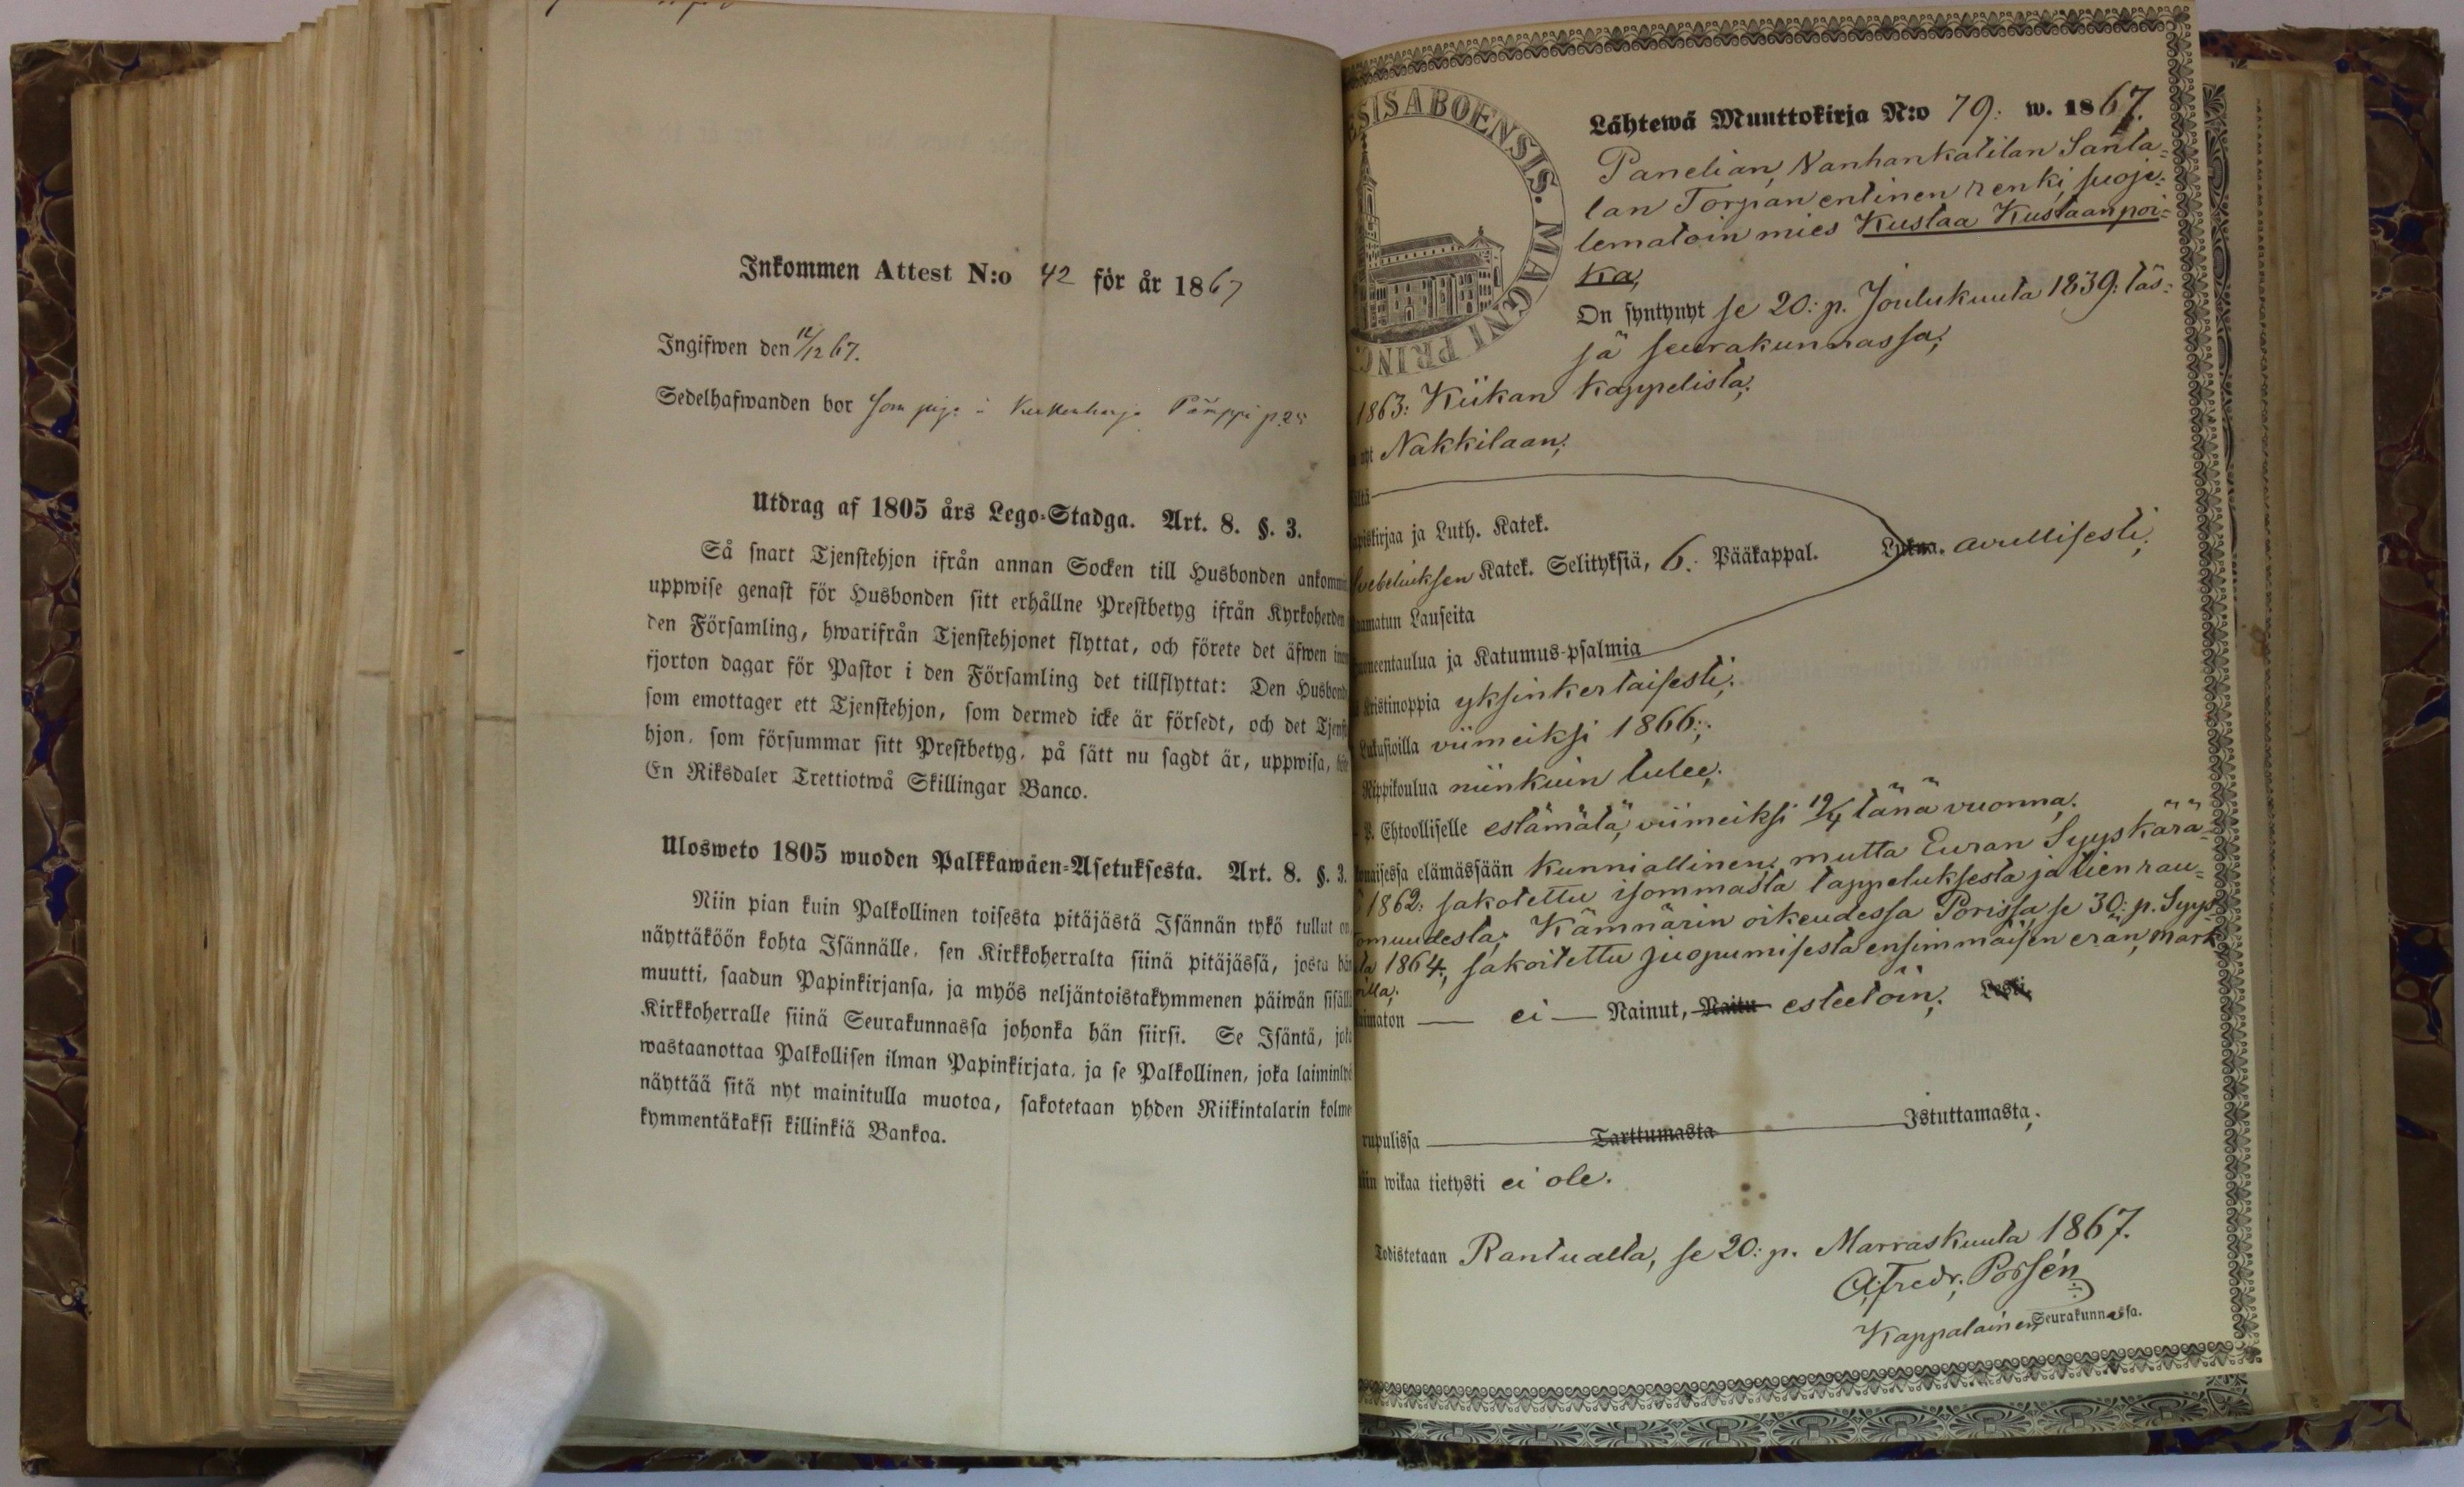 Inkommen Attest N:o 42 för år 1867
Ingifwen den 12/12 67.
Sedelhafwanden bor som piga i
Utdrag af 1805 års Lego-Stadga. Art. 8. §. 3.
Så snart Tjenstehjon ifrån annan Socken till Husbonden ankommit
uppwise genast för Husbonden sitt erhållne Prestbetyg ifrån Kyrkoherden
den Församling, hwarifrån Tjenstehjonet flyttat, och förete det äfwen inom
fjorton dagar för Pastor i den Församling det tillflyttat: Den Husbonde
som emottager ett Tjenstehjon, som dermed icke är försedt, och det Tjenste
hjon, som försummar sitt Prestbetyg, på sätt nu sagdt är, uppwisa,
En Riksdaler Trettiotwå Skillingar Banco.
Ulosweto 1805 wuoden Palkkawäen-Asetuksesta. Art. 8. §. 3.
Niin pian kuin Palkollinen toisesta pitäjästä Isännän tykö tullut on,
näyttäköön kohta Isännälle, sen Kirkkoherralta siinä pitäjässä, josta hän
muutti, saadun Papinkirjansa, ja myös neljäntoistakymmenen päiwän sisällä
Kirkkoherralle siinä Seurakunnassa johonka hän siirsi. Se Isäntä, joka
wastaanottaa Palkollisen ilman Papinkirjata, ja se Palkollinen, joka laiminlyö
näyttää sitä nyt mainitulla muotoa, sakotetaan yhden Riikintalarin kolme
kymmentäkaksi killinkiä Bankoa.
ESIS ABOENSIS. MAGNI PRINC
Lähtewä Muuttokirja N:o 79: w. 1867.
Panelian, Vanhankatilan Santa-
lan Torpan entinen renki, suoje-
lematoin mies Kustaa Kustaanpoi-
ka,
On syntynyt se 20: p. Joulukuuta 1839: täs-
sä seurakunnassa;
1863: Kiikan Kappelista;
nyt Nakkilaan;
piskirjaa ja Luth. Katek.
Svebeliuksen Katek. Selityksiä, 6: Pääkappal. Lukua. avullisesti;
aamatun Lauseita
oneentaulua ja Katumus-psalmia
Kristinoppia yksinkertaisesti;
Lukusioilla viimeiksi 1866:;
Rippikoulua niinkuin tulee;
P. Ehtoolliselle estämätä, viimeiksi 19/4 tänä vuonna;
maisessa elämässään kunniallinen; mutta Euran Syyskärä-
1862: sakotettu isommasta tappeluksesta ja tienrau-
omuudesta; Kämnärin oikeudessa Porissa, se 30: p. Syys-
ta 1864:, sakoitettu juopumisesta ensimmäisen erän, mark
illa;
aimaton — ei — Nainut, Naitu esteetöin; Leski.
rupulissa Tarttumasta Istuttamasta;
iin wikaa tietysti ei ole.
Todistetaan Rantualta, se 20: p. Marraskuuta 1867.
A. Fredr. Porsén
Kappalainen Seurakunnassa.